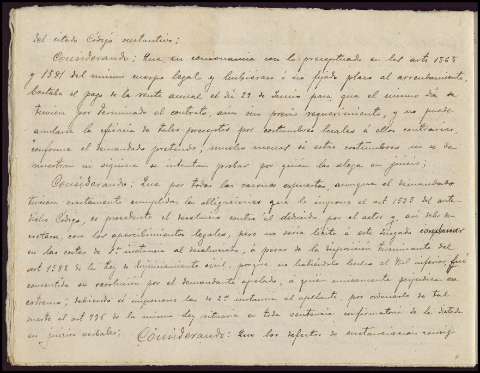 del citado Código sustantivo;
Considerando: Que en consonancia con lo preceptuado en los arts 1565
y 1581 del mismo cuerpo legal y hubiérase ó no fijado plazo al arrendamiento,
bastaba el pago de la renta anual el día 29 de Junio para que el mismo día se
tuviera por terminado el contrato, aun sin previo requerimiento, y no puede
anularse la eficacia de tales preceptos por costumbres locales á ellos contrarias,
conforme el demandado pretende, mucho menos si estas costumbres no se de
muestran ni siquiera se intentan probar por quien las alega en juicio;
Considerando: Que por todas las razones expuestas, aunque el demandado
tuviera exactamente cumplidas las obligaciones que le impone el art 1555 del cita-
do Código, es procedente el desahucio contra él deducido por el actor y así debe de-
cretarse, con los apercibimientos legales, pero no sería lícito á este Juzgado condenar
en las costas de 1ª instancia al desahuciado, á pesar de la disposición terminante del
art 1582 de la ley de Enjuiciamiento civil, porque no habiéndolo hecho el Tral inferior, fué
consentida su resolución por el demandante apelado, á quien únicamente perjudica ese
extremo; debiendo sí imponerse las de 2ª instancia al apelante, por ordenarlo
el art 736 de la misma ley rituaria en toda sentencia confirmatoria de la dictada
en juicios verbales; Considerando: Que los defectos de sustanciación